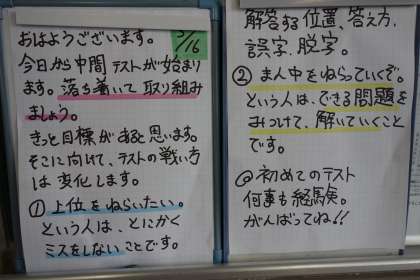 おはようございます。
5/16
今日から中間テストが始まり
ます。落ち着いて取り組み
ましょう。
きっと目標があると思います。
そこに向けて、テストの戦い方
は変化します。
① 上位をねらいたい。
という人は、とにかく
ミスをしないことです。
解答する位置、答え方、
誤字、脱字。
② まん中をねらっていくぞ。
という人は、できる問題を
みつけて、解いていくこと
です。
@初めてのテスト
何事も経験。
がんばってね!!